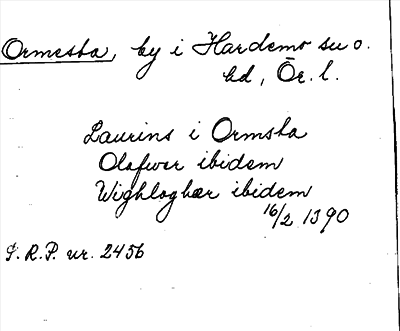 Ormesta, by i Hardemo sn o.
hd, Ör. l.
Laurins i Ormsta
Olafwer ibidem
Wighloghær ibidem
16/2 1390
S. R. P. nr. 2456